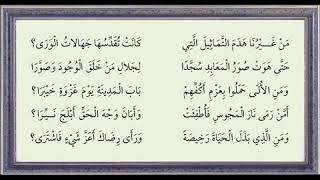 مَنْ غَيْرُنَا هَدَمَ التَّمَاثِيلَ الَّتِي كَانَتْ تُقَدِّسُهَا جَهَالَاتُ الْوَرَى؟
حَتَّى هَوَتْ صُوَرُ الْمَعَابِدِ سُجَّدًا لِجَلَالِ مَنْ خَلَقَ الْوُجُودَ وَصَوَّرَا
وَمَنِ الْأُلَى حَمَلُوا بِعَزْمِ أَكُفِّهِمْ بَابَ الْمَدِينَةِ يَوْمَ غَزْوَةِ خَيْبَرَا؟
أَمَّنْ رَمَى نَارَ الْمَجُوسِ فَأُطْفِئَتْ وَأَبَانَ وَجْهَ الْحَقِّ أَبْلَجَ نَيِّرَا؟
وَمَنِ الَّذِي بَذَلَ الْحَيَاةَ رَخِيصَةً وَرَأَى رِضَاكَ أَعَزَّ شَيْءٍ فَاشْتَرَى؟